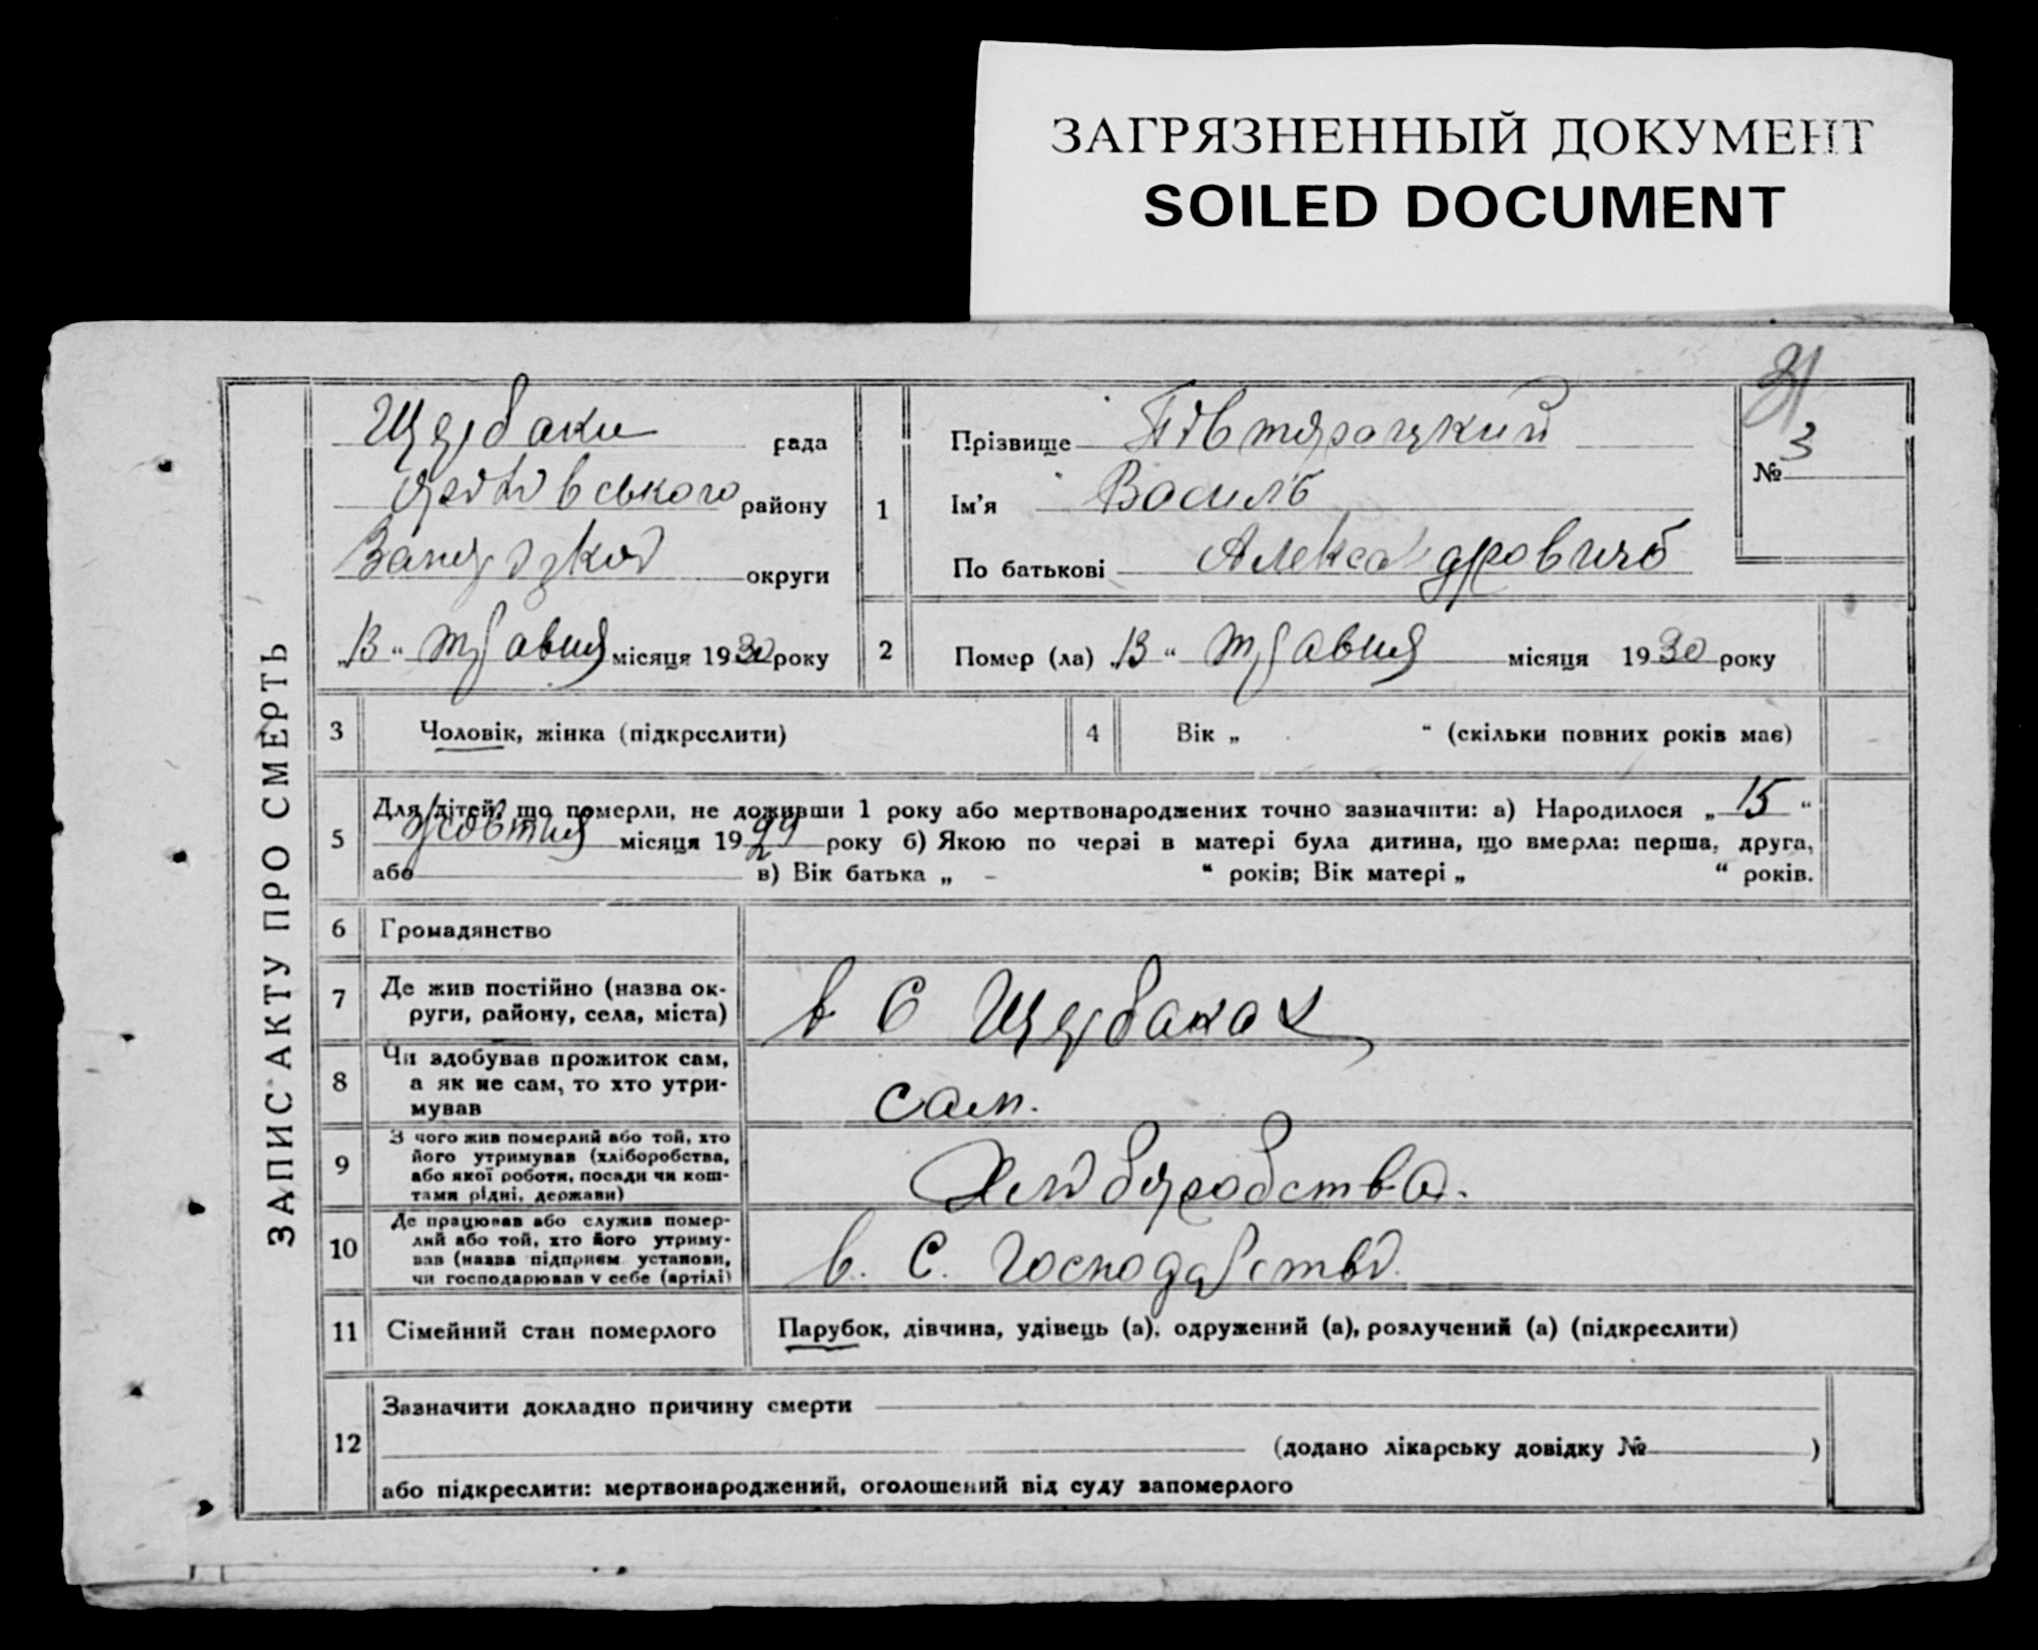 ЗАГРЯЗНЕННЫЙ ДОКУМЕНТ
SOILED DOCUMENT
31
ЗАПИС АКТУ ПРО СМЕРТЬ
Щербаки рада
району
округи
„13“ травня місяця 1930 року
1
Прізвище
Ім'я Василь
По батькові Александровичь
№ 3
2
Помер (ла) „13“ травня місяця 1930 року
3
Чоловік, жінка (підкреслити)
4
Вік „ “ (скільки повних років має)
5
Для дітей, що померли, не доживши 1 року або мертвонароджених точно зазначити: а) Народилося „15“
жовтня місяця 1929 року б) Якою по черзі в матері була дитина, що вмерла: перша, друга,
або в) Вік батька „ - “ років; Вік матері „ “ років.
6
Громадянство
7
Де жив постійно (назва ок-
руги, району, села, міста)
в С Щербаках
8
Чи здобував прожиток сам,
а як не сам, то хто утри-
мував
сам.
9
З чого жив померлий або той, хто
його утримував (хліборобства,
або якої роботи, посади чи кош-
тами рідні, держави)
Хліборобства.
10
Де працював або служив помер-
лий або той, хто його утриму-
вав (назва підприєм. установи,
чи господарював у себе (артілі)
в. С. господарстві.
11
Сімейний стан померлого
Парубок, дівчина, удівець (а), одружений (а), розлучений (а) (підкреслити)
12
Зазначити докладно причину смерти
(додано лікарську довідку № )
або підкреслити: мертвонароджений, оголошений від суду запомерлого